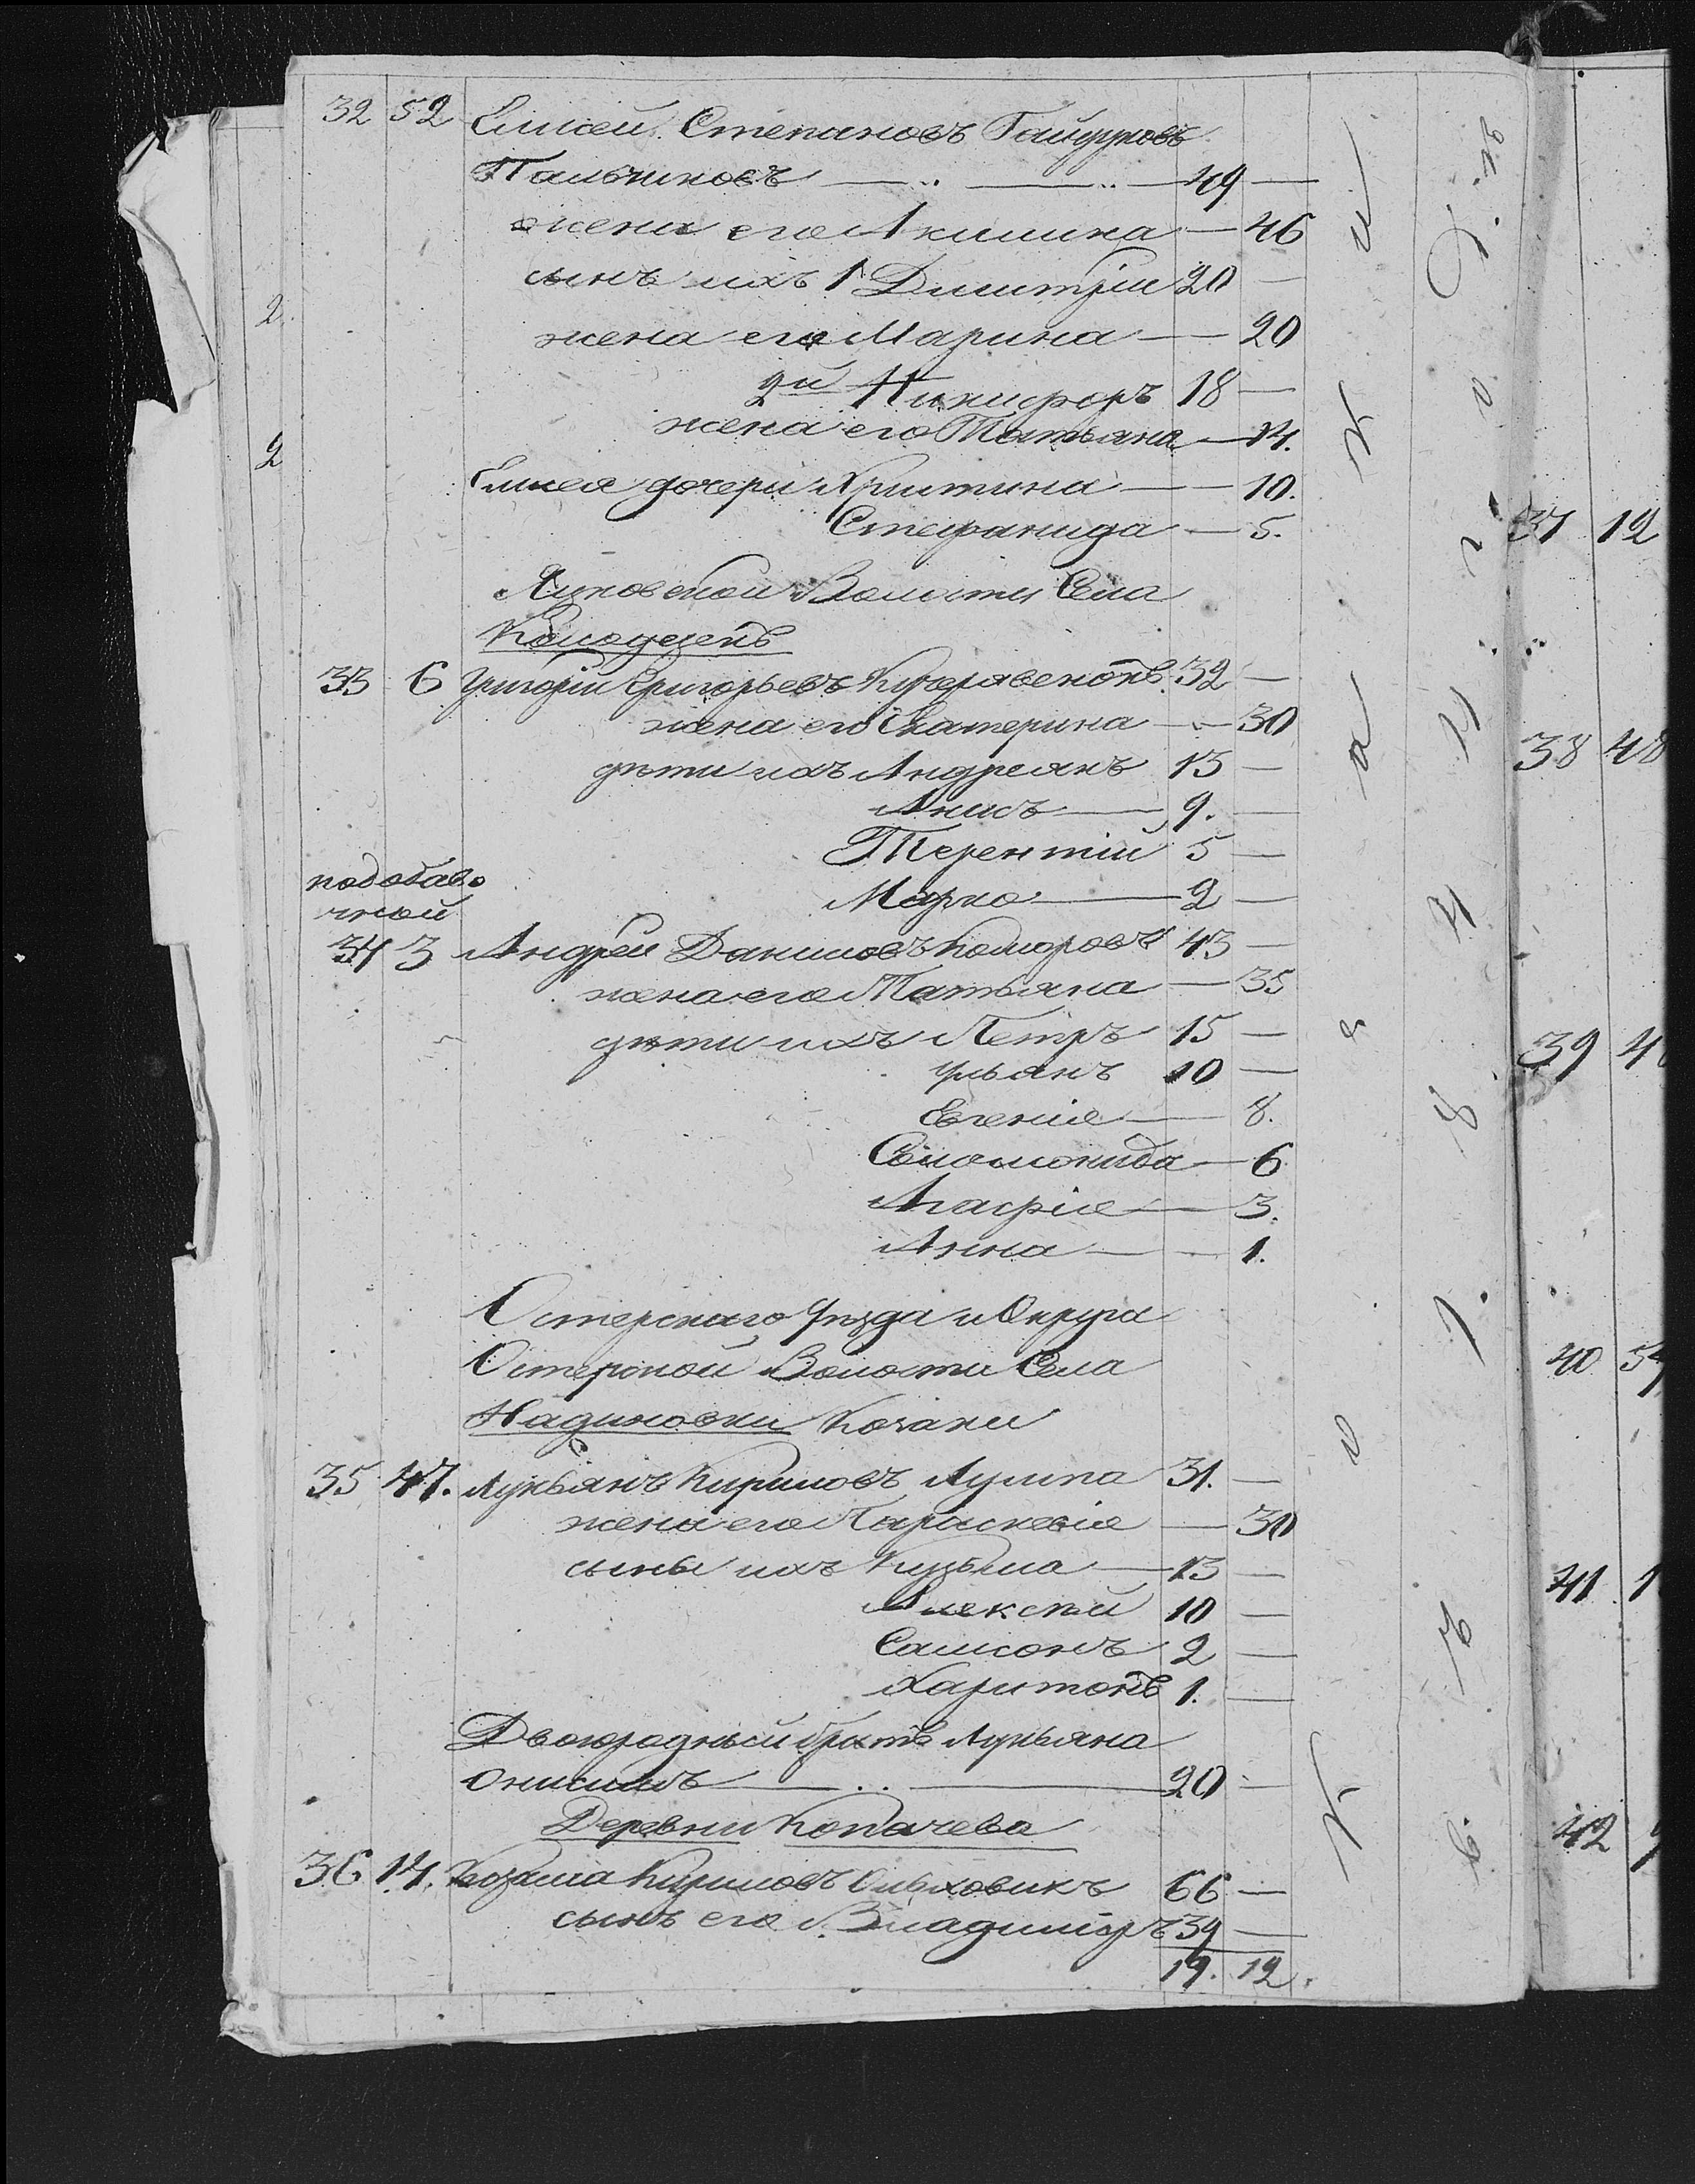 32 52 Елисей Степановъ Гайдуковъ
Пальчиковъ 49 —
жена его Акилина — 46
сынъ ихъ 1 Дмитрій 20 —
жена его Марина — 20
2й Никифоръ 18 —
жена его Татьяна — 14.
Елисея дочери Христина — 10.
Стефанида — 5.
Волости Села
Колодезенъ
33 6 Григорій Григорьевъ Кучеравенокъ 32 —
жена его Екатерина — 30
дѣти ихъ Андреянъ 13 —
9. —
Терентій 5 —
Марко — 2 —
подобаво
чной
34 3 Андрей Даниловъ Комаровъ 43 —
жена его Татьяна — 35
дѣти ихъ Петръ 15 —
Ульянъ 10 —
Евгенія — 8.
Соломонида — 6
Агафія — 3.
Анна — 1.
Остерскаго уѣзда и Округа
Остерской Волости Села
Надиновки Козаки
35 47. Лукьянъ Кириловъ Лулпа 31. —
жена его Параскевія — 30
сыны ихъ Кузьма — 13 —
Алексѣй 10 —
Самсонъ 2 —
Харитонъ 1. —
Двоюродный братъ Лукьяна
Онисимъ 20 —
Деревни Копачева
36 14. Козьма Кириловъ Ольховикъ 66 —
сынъ его Владимиръ 39 —
19. 12.
37 12
38 48
39 4
40 54
41 1
42
2.
2